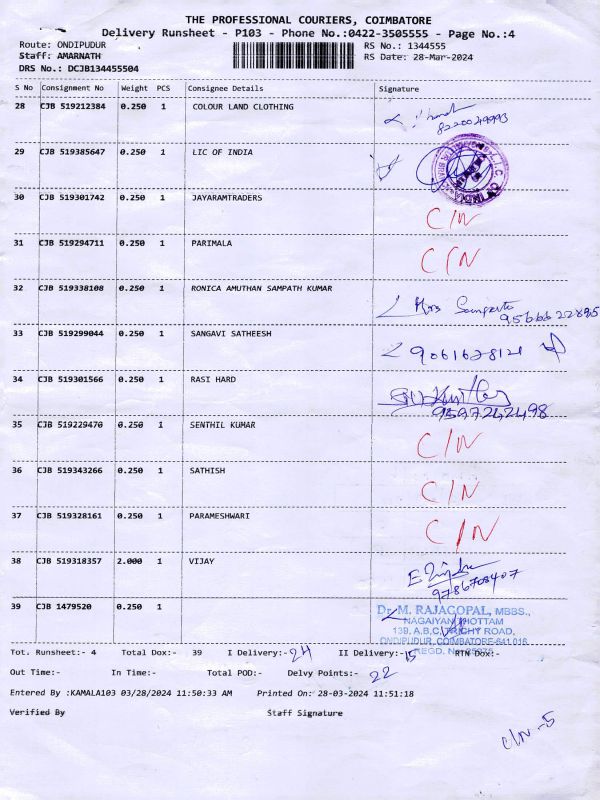 THE PROFESSIONAL COURIERS, COIMBATORE
Delivery Runsheet - P103 - Phone No.:0422-3505555 - Page No.:4
Route: ONDIPUDUR
RS No.: 1344555
Staff: AMARNATH
RS Date: 28-Mar-2024
DRS No.: DCJB134455504
S No Consignment No Weight PCS Consignee Details Signature
28 CJB 519212384 0.250 1 COLOUR LAND CLOTHING
8220049993
29 CJB 519385647 0.250 1 LIC OF INDIA
30 CJB 519301742 0.250 1 JAYARAMTRADERS C/N
31 CJB 519294711 0.250 1 PARIMALA C/N
32 CJB 519338108 0.250 1 RONICA AMUTHAN SAMPATH KUMAR Mrs
9566622895
33 CJB 519299044 0.250 1 SANGAVI SATHEESH 9061628121
34 CJB 519301566 0.250 1 RASI HARD
9597242498
35 CJB 519229470 0.250 1 SENTHIL KUMAR C/N
36 CJB 519343266 0.250 1 SATHISH C/N
37 CJB 519328161 0.250 1 PARAMESHWARI C/N
38 CJB 519318357 2.000 1 VIJAY
9786708407
39 CJB 1479520 0.250 1 Dr. M. RAJAGOPAL, MBBS.,
NAGAIYAN THOTTAM
139, A,B,C, TRICHY ROAD,
ONDIPUDUR, COIMBATORE-641 016
REGD. No.
Tot. Runsheet:- 4 Total Dox:- 39 I Delivery:- 24 II Delivery:- 15 RTN Dox:-
Out Time:- In Time:- Total POD:- Delvy Points:- 22
Entered By :KAMALA103 03/28/2024 11:50:33 AM Printed On: 28-03-2024 11:51:18
Verified By Staff Signature
C/N - 5